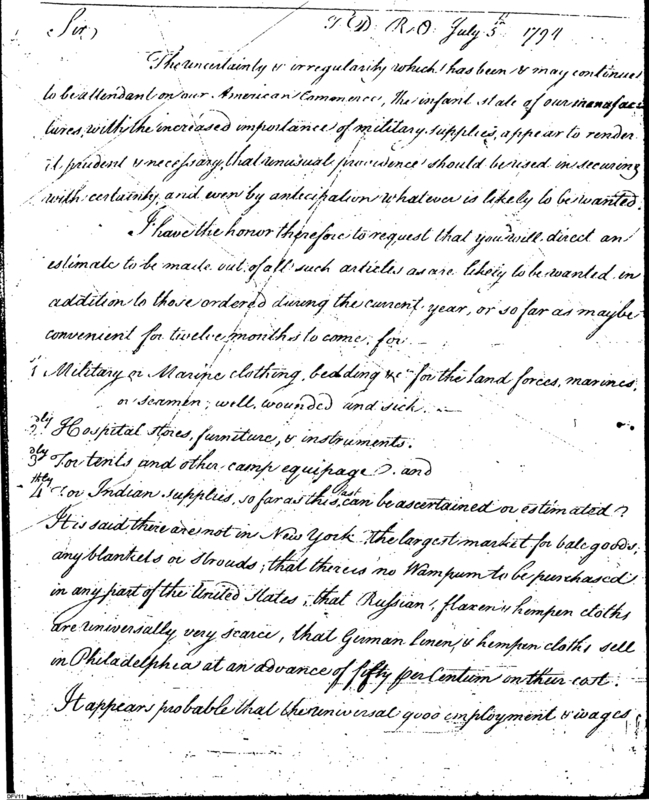 Sir,
T D. R.O. July 5th 1794
The uncertainty & irregularity which has been & may continue
to be attendant on our American Commerce, the infant state of our manufac
tures, with the increased importance of military supplies, appear to render
it prudent & necessary, that unusual providence should be used in securing
with certainty and even by anticipation whatever is likely to be wanted.
I have the honor therefore to request that you will direct an
estimate to be made out of all such articles as are likely to be wanted in
addition to those ordered during the current year, or so far as may be
convenient for twelve months to come, for
1 Military or Marine clothing, bedding &c. for the Land forces, marines,
or seamen; well, wounded and sick.
2dly Hospital stores, furniture, & instruments.
3dly For tents and other camp equipage. and
4thly For Indian supplies, so far as this last can be ascertained or estimated?
It is said there are not in New York, the largest market for bale goods,
any blankets or Strouds; that there is no Wampum to be purchased
in any part of the United States, that Russian, flaxen & hempen cloths
are universally very scarce, that German Linen, & hempen cloths sell
in Philadelphia at an advance of fifty per Centum on their cost.
It appears probable that the universal good employment & wages